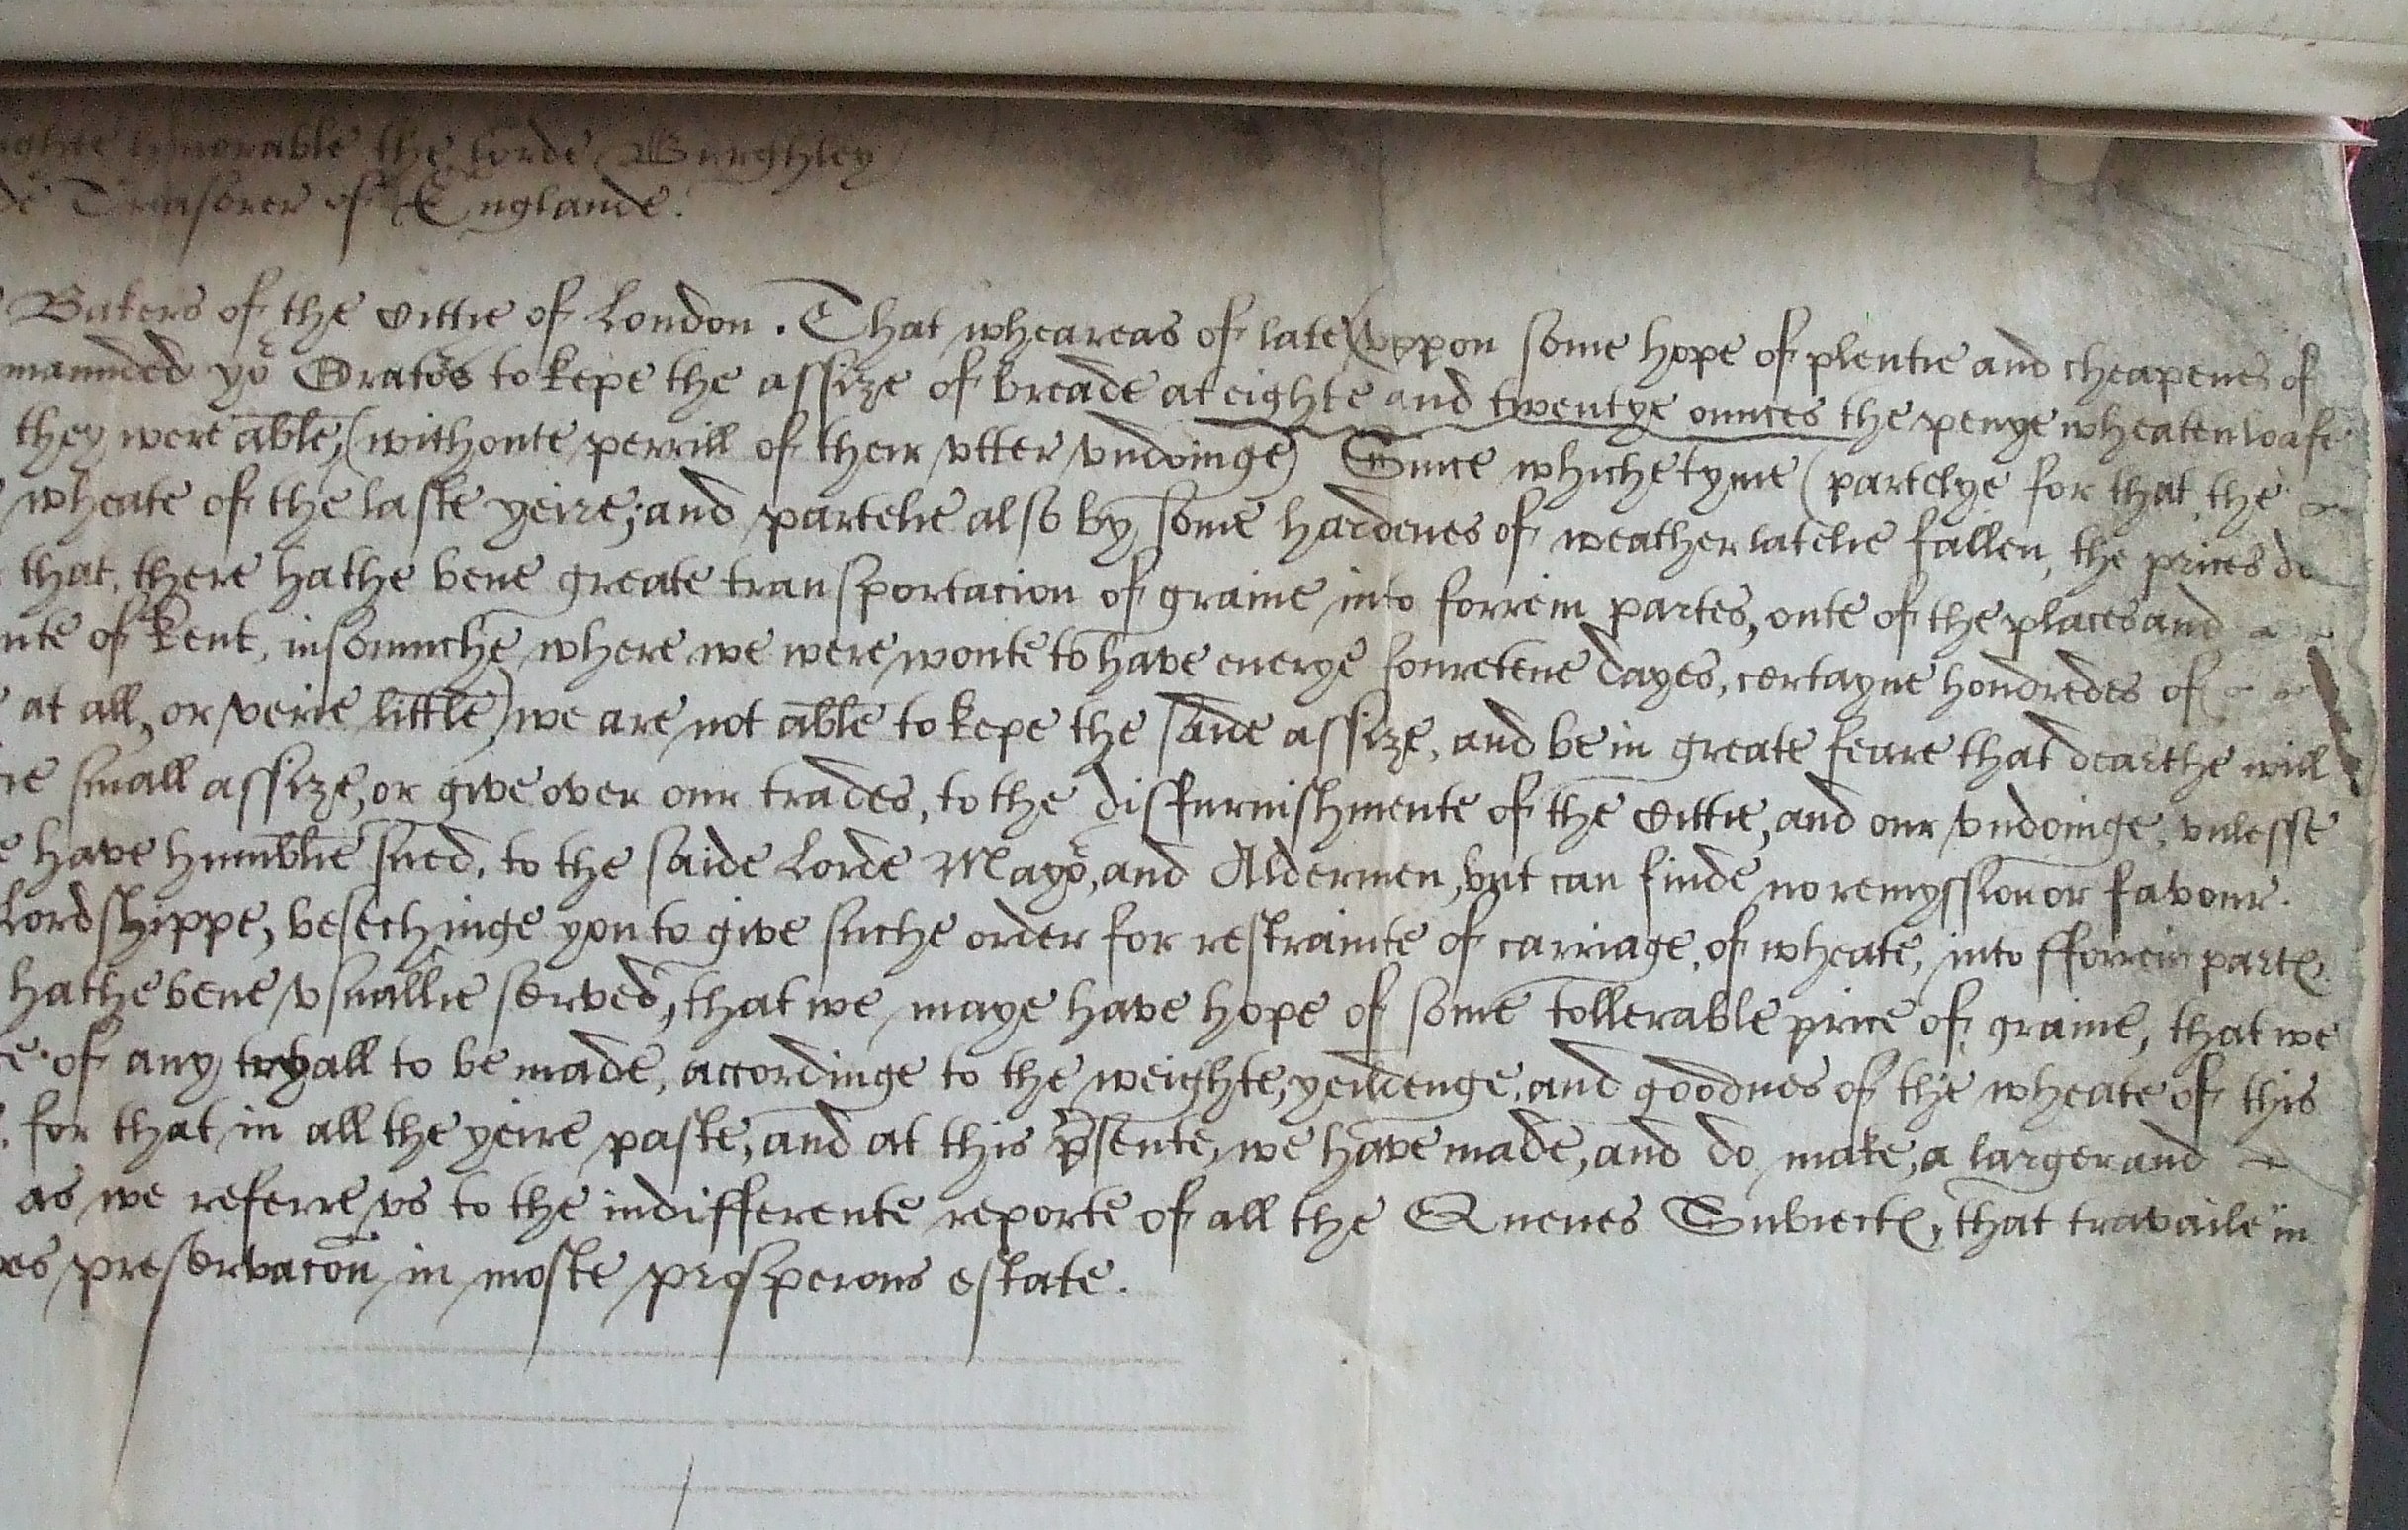 honorable the lorde Burghley
Treasorer of Englande.
Bakers of the Cittie of London. That wheareas of late (vppon some hope of plentie and cheapenes of
yor Orators to kepe the assize of breade at eighte and twentye ounces the penye wheaten loafe
they were able, (withoute perrill of their vtter vndoinge) Since whiche tyme (partelye for that the
wheate of the laste yeire, and partelie also by some hardenes of weather latelie fallen, the prices do
that, there hathe bene greate transportacion of graine into forrein partes, oute of the places and
of Kent, insomuche where we were wonte to have euerye fouretene dayes, certayne hondredes of
at all, or verie little) we are not able to kepe the saide assize, and be in greate feare that dearthe will
small assize, or give over our trades, to the disfurnishmente of the Cittie, and our vndoinge, vnlesse
have humblie sued, to the saide Lorde Mayor, and Aldermen, but can finde no remyssion or favour.
Lordshippe, besechinge you to give suche order for restrainte of carriage, of wheate, into fforrein partes
hathe bene vsuallie served, that we maye have hope of some tollerable price of graine, that we
of any tryall to be made, accordinge to the weighte, yeildenge, and goodnes of the wheate of this
for that in all the yeire paste, and at this psente, we have made, and do make, a larger and
as we referre vs to the indifferente reporte of all the Quenes Subiectes, that travaile in
preservacon in moste prosperous estate.